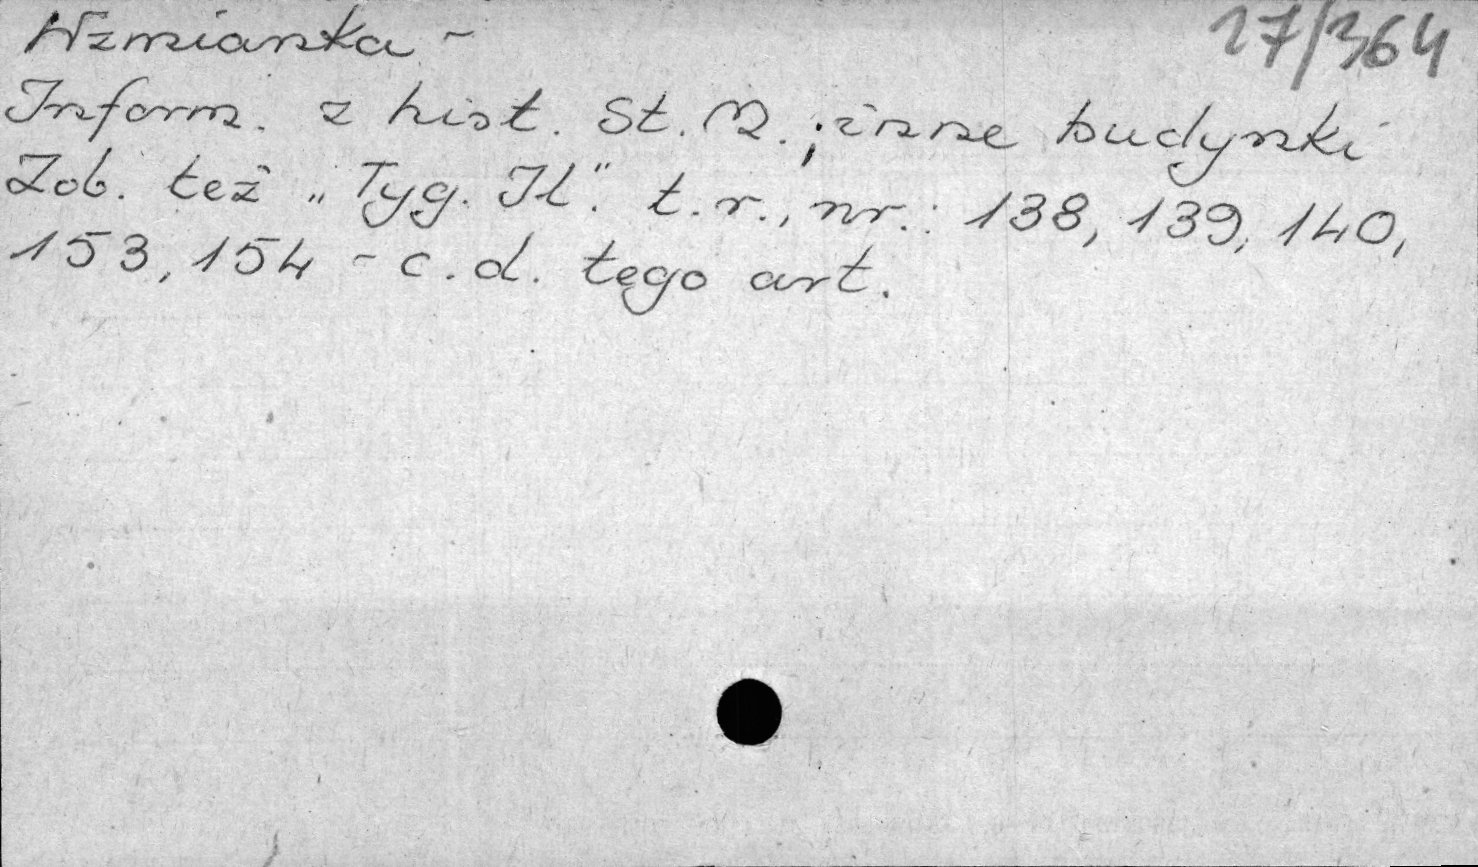 Wzmianka -
27/364
Inform. z hist. St. M.; inne budynki
Zob. też "Tyg. Il." t. r., nr.: 138, 139, 140,
153, 154 - c. d. tego art.